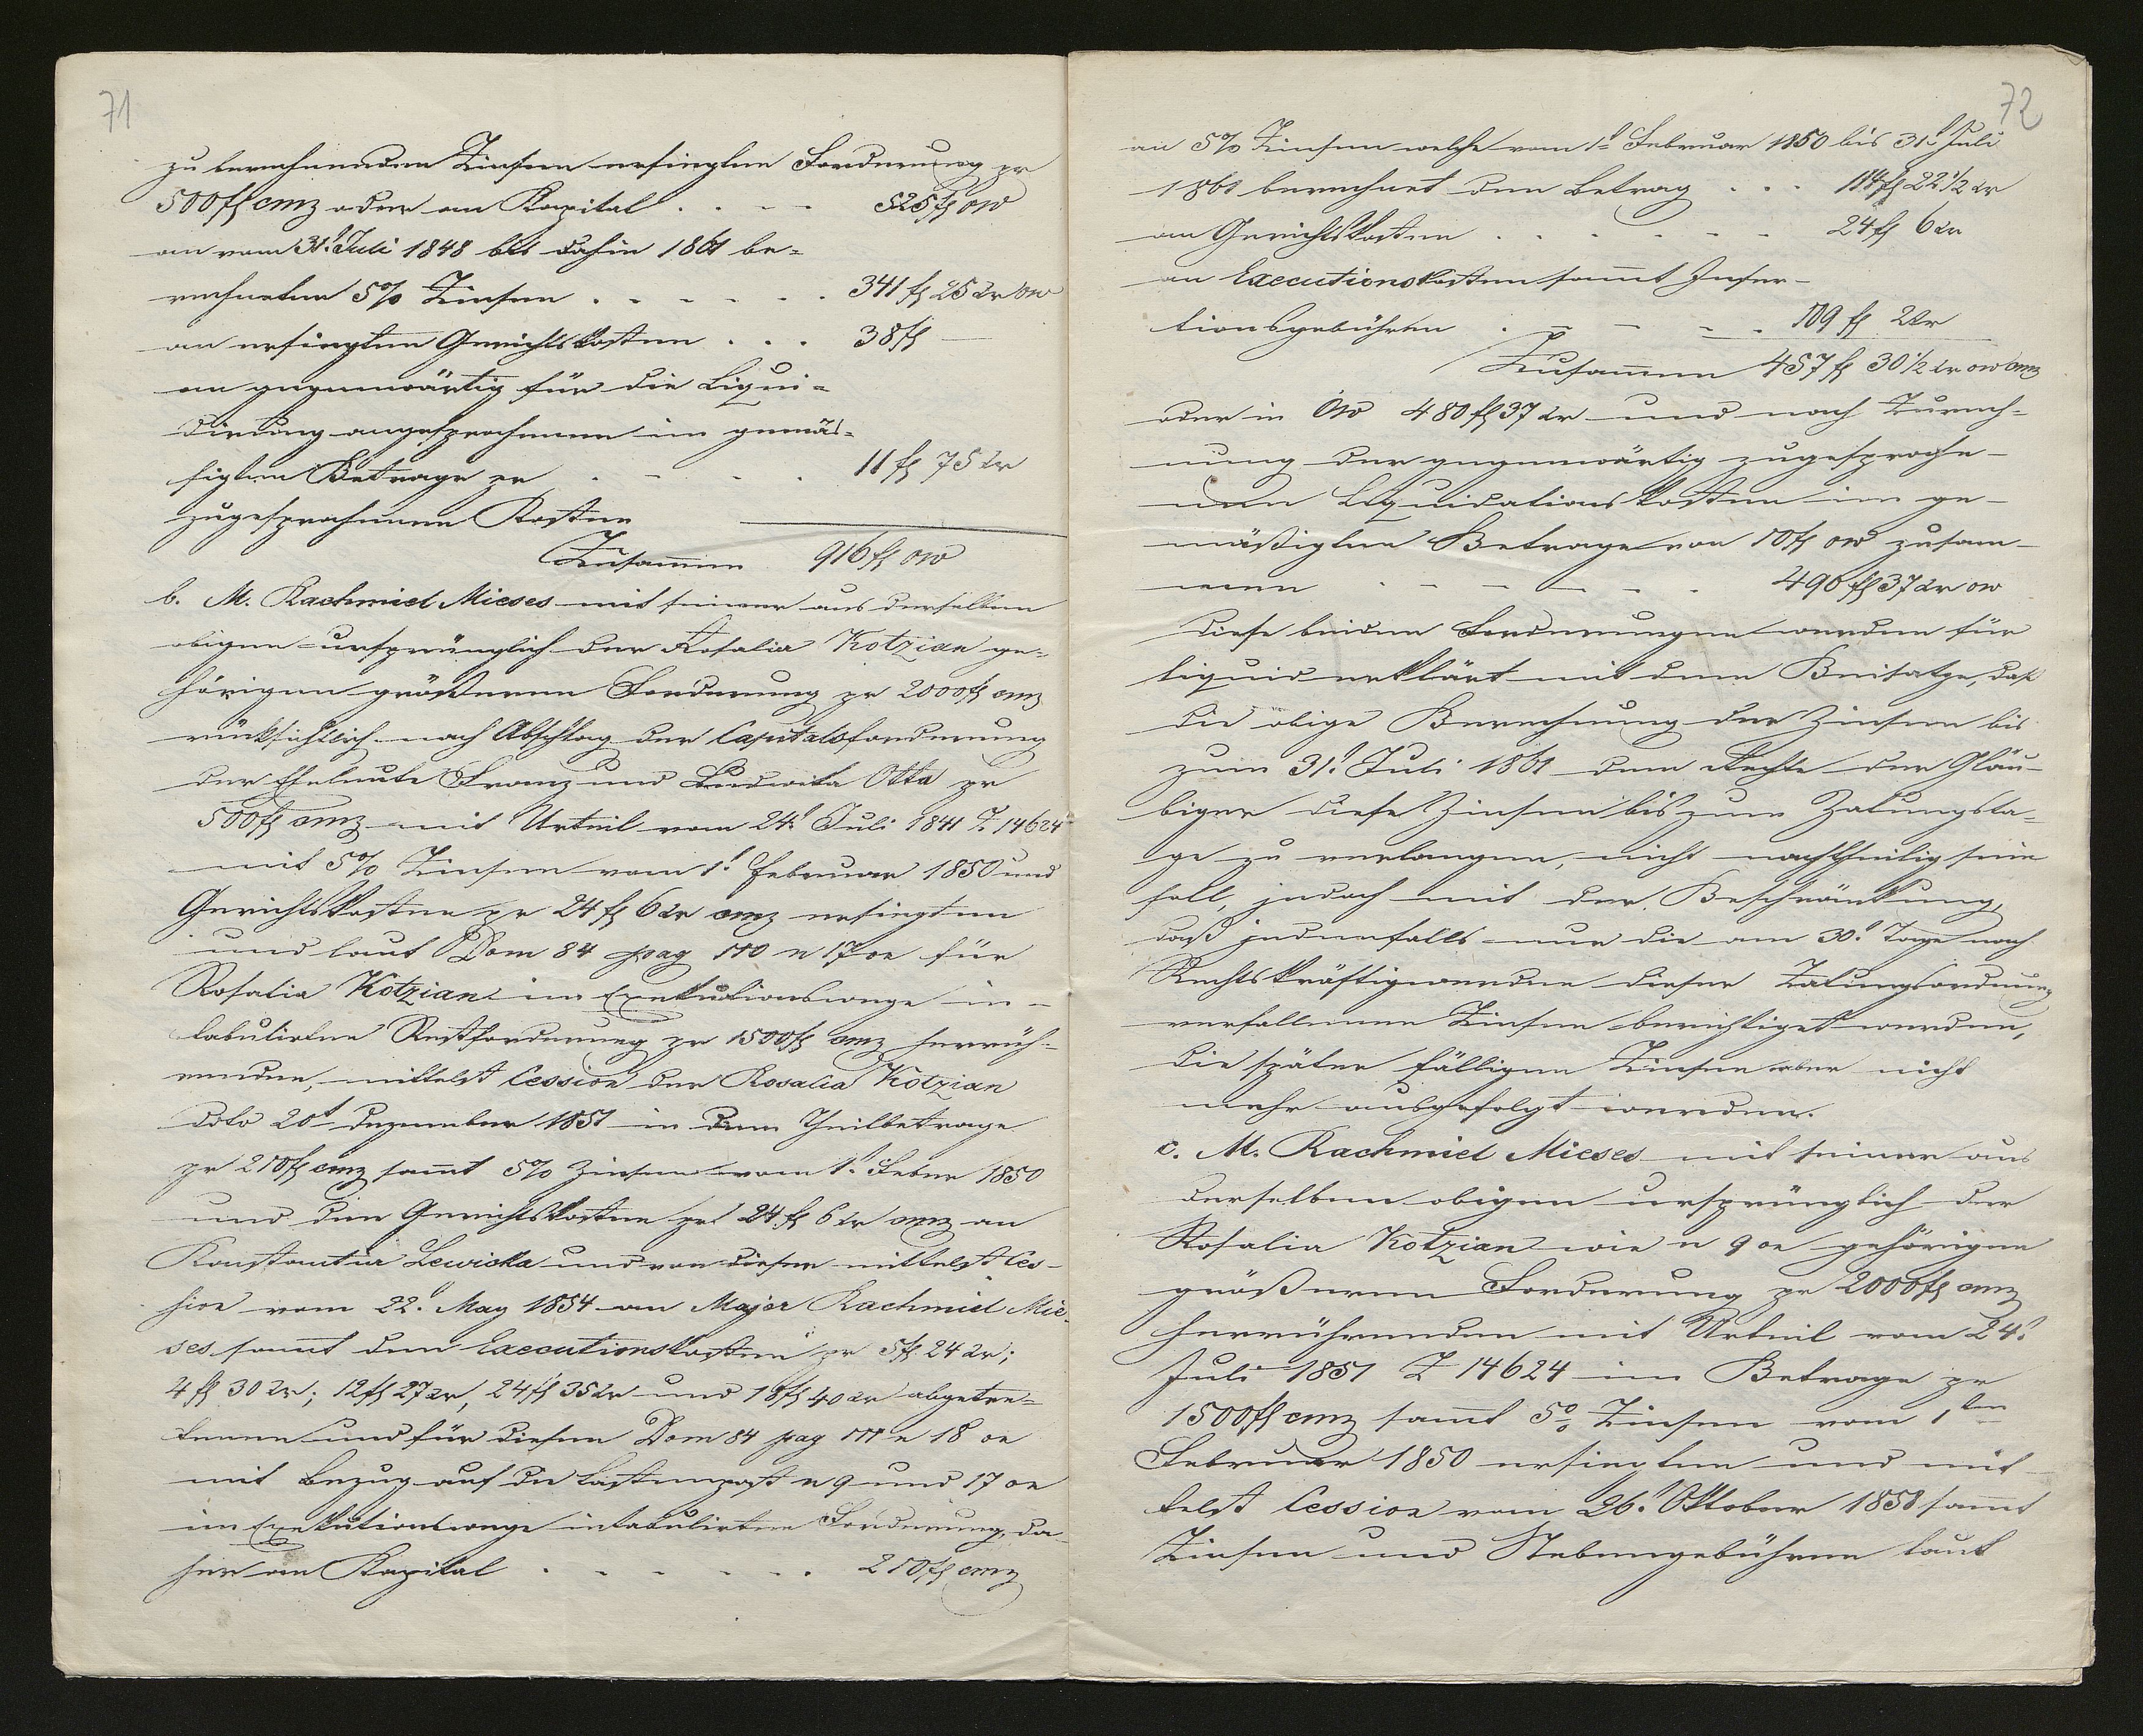 71
zu berechnenden Zinsen ersiegten Forderung pr
500 fl cmz oder an Kapital . . . . 525 fl ow
an vom 31t Juli 1848 bis dahin 1861 be-
rechneten 5% Zinsen . . . . . . 341 fl 25 kr ow
an ersiegten Gerichtskosten . . . 38 fl —
an gegenwärtig für die Liqui-
dirung angesprochenen im gemäs-
sigten Betrage pr . . . . 11 fl 75 kr
zugesprochenen Kosten
Zusammen 916 fl ow
b. M. Rachmiel Mieses mit seiner aus derselben
obigen ursprünglich der Rosalia Kotzian ge-
hörigen größeren Forderung pr 2000 fl cmz
rücksichtlich nach Abschlag der Capitalsforderung
der Eheleute Franz und Ludwika Otta pr
500 fl cmz mit Urteil vom 24t Juli 1841 Z. 14624
mit 5% Zinsen vom 1t Februar 1850 und
Gerichtskosten pr 24 fl 6 kr cmz ersiegten
und laut Dom 84 pag 110 n 17 on für
Rosalia Kotzian im Exekutionswege in-
tabulirten Restforderung pr 1500 fl cmz herrüh-
renden, mittelst Cession der Rosalia Kotzian
ddto 20t Dezember 1851 in dem Theilbetrage
pr 210 fl cmz sammt 5% Zinsen vom 1t Feber 1850
und den Gerichtskosten pr 24 fl 6 kr cmz an
Konstantia Lewicka und von dieser mittelst Ces-
sion vom 22t May 1854 an Majer Rachmiel Mie-
ses sammt den Executionskosten pr 5 fl 24 kr;
4 fl 30 kr; 12 fl 27 kr, 24 fl 35 kr und 18 fl 40 kr abgetre-
tenen und für diesen Dom 84 pag 111 n 18 on
mit Bezug auf die Lastenpost n 9 und 17 on
im Exekutionswege intabulirten Forderung, da-
her an Kapital . . . . . . 210 fl cmz
72
an 5% Zinsen welche vom 1t Februar 1850 bis 31t Juli
1861 berechnet den Betrag . . . 114 fl 22½ kr
an Gerichtskosten . . . . . . 24 fl 6 kr
an Executionskosten sammt Inser-
tionsgebühren . . . . . 109 fl 2 kr
Zusammen 457 fl 30½ kr ow cmz
oder in Öw 480 fl 37 kr und nach Zurech-
nung der gegenwärtig zugesproche-
nen Liquidationskosten im ge-
mäßigten Betrage von 10 fl ow zusam-
men . . . . . . 490 fl 37 kr ow
Diese beiden Forderungen werden für
liquid erklärt mit dem Beisatze, daß
die obige Berechnung der Zinsen bis
zum 31t Juli 1861 dem Rechte der Gläu-
biger diese Zinsen bis zum Zalungsta-
ge zu verlangen, nicht nachtheilig sein
soll, jedoch mit der Beschränkung,
daß jedenfalls nur die am 30t Tage nach
Rechtskräftigwerden dieser Zalungsordnung
verfallenen Zinsen berichtiget werden,
die später fälligen Zinsen aber nicht
mehr ausgefolgt werden.
c. M. Rachmiel Mieses mit seiner aus
derselben obigen ursprünglich der
Rosalia Kotzian wie n 9 on gehörigen
größeren Forderung pr 2000 fl cmz
herrührenden mit Urteil vom 24t
Juli 1851 Z 14624 im Betrage pr
1500 fl cmz sammt 5% Zinsen vom 1ten
Februar 1850 ersiegten und mit-
telst Cession vom 26t Oktober 1858 sammt
Zinsen und Nebengebühren laut